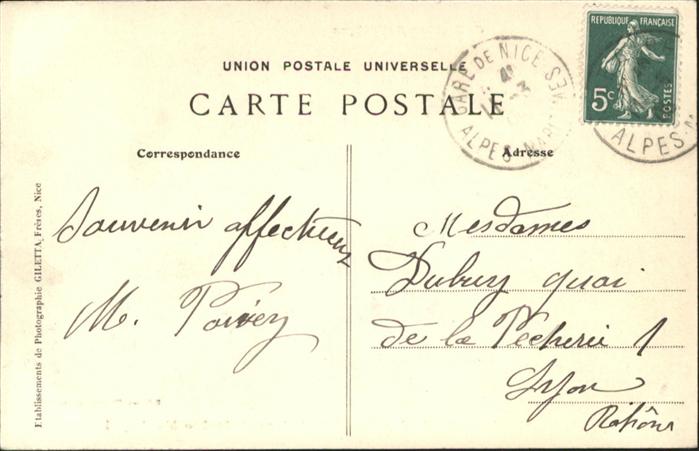 UNION POSTALE UNIVERSELLE
CARTE POSTALE
Correspondance
Adresse
Souvenir affectueux
M.
Mesdames
quai
de la Pêcherie 1
Lyon
Rhône
REPUBLIQUE FRANÇAISE
5c
POSTES
GARE DE NICE
ALPES MAR
ALPES M
Etablissements de Photographie GILETTA, Frères, Nice